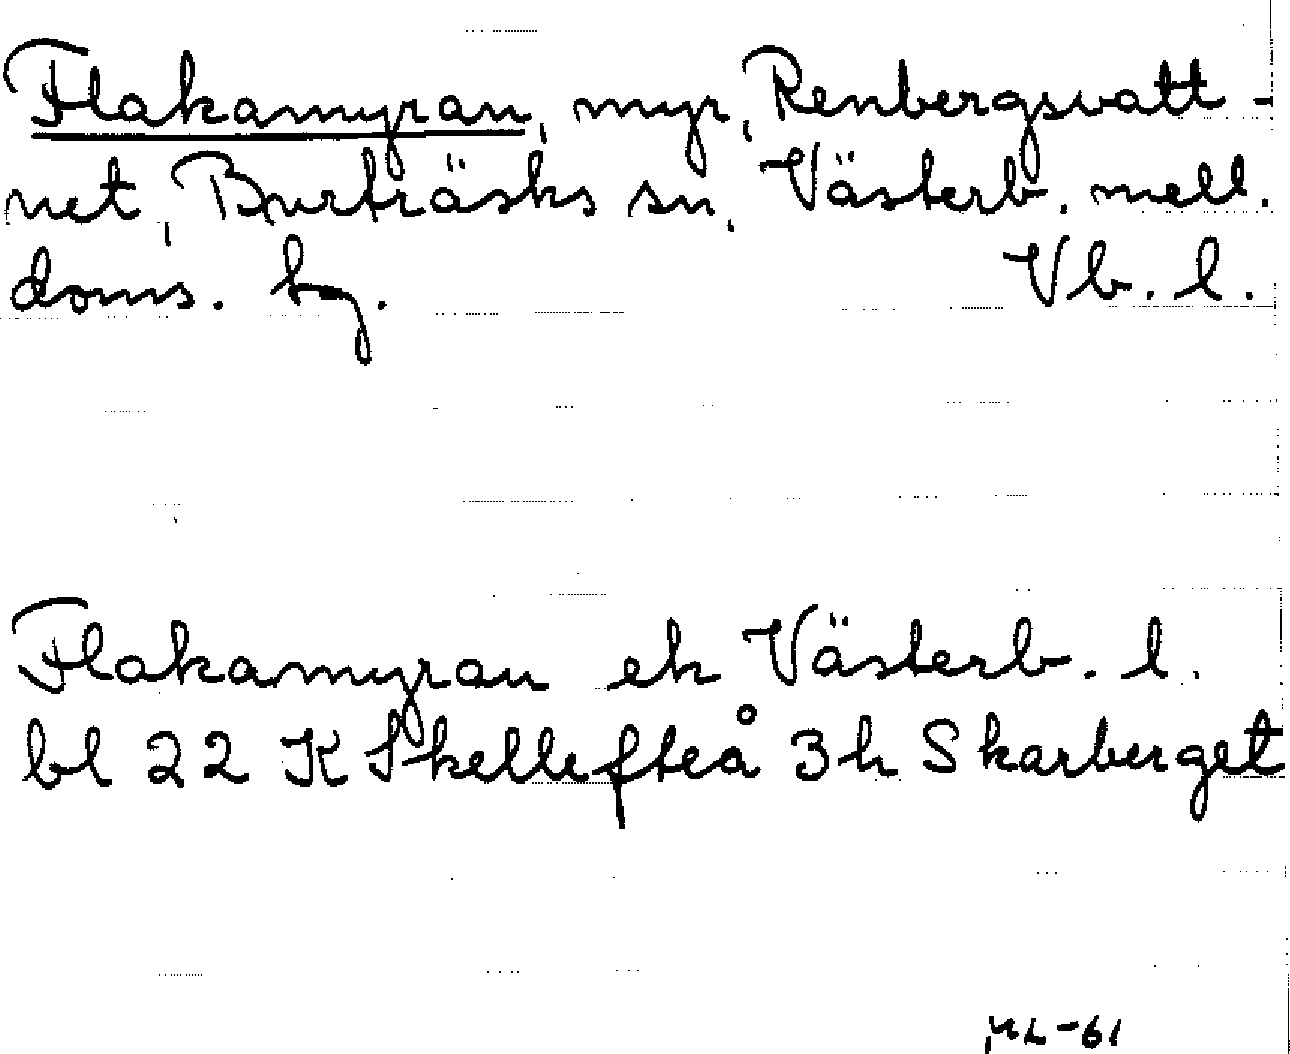 Flakamyran, myr, Renbergsvatt-
net, Burträsks sn, Västerb. mell.
doms. bg. Vb. l.
Flakamyran ek Västerb. l.
bl 22 K Skellefteå 3h Skarberget